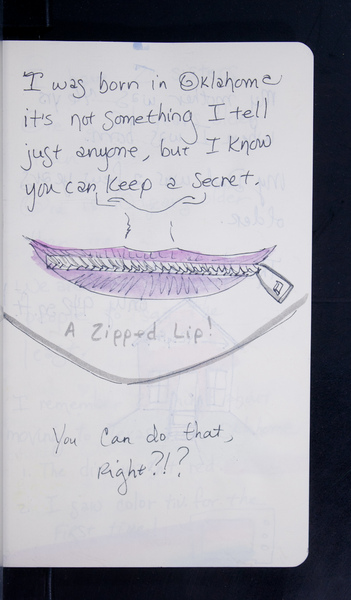 I was born in Oklahoma
it's not something I tell
just anyone, but I know
you can keep a secret.
A Zipped Lip!
You can do that,
Right?!?